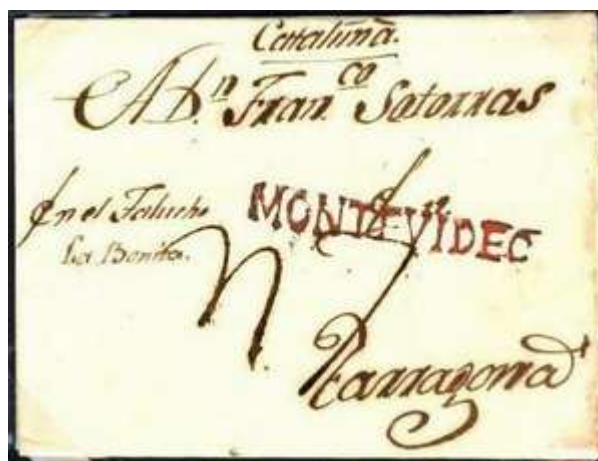 Cataluña.
A Dn. Franco. Sotorras
En el Faluch
La Bonita.
MONTEVIDEO
Tarragona